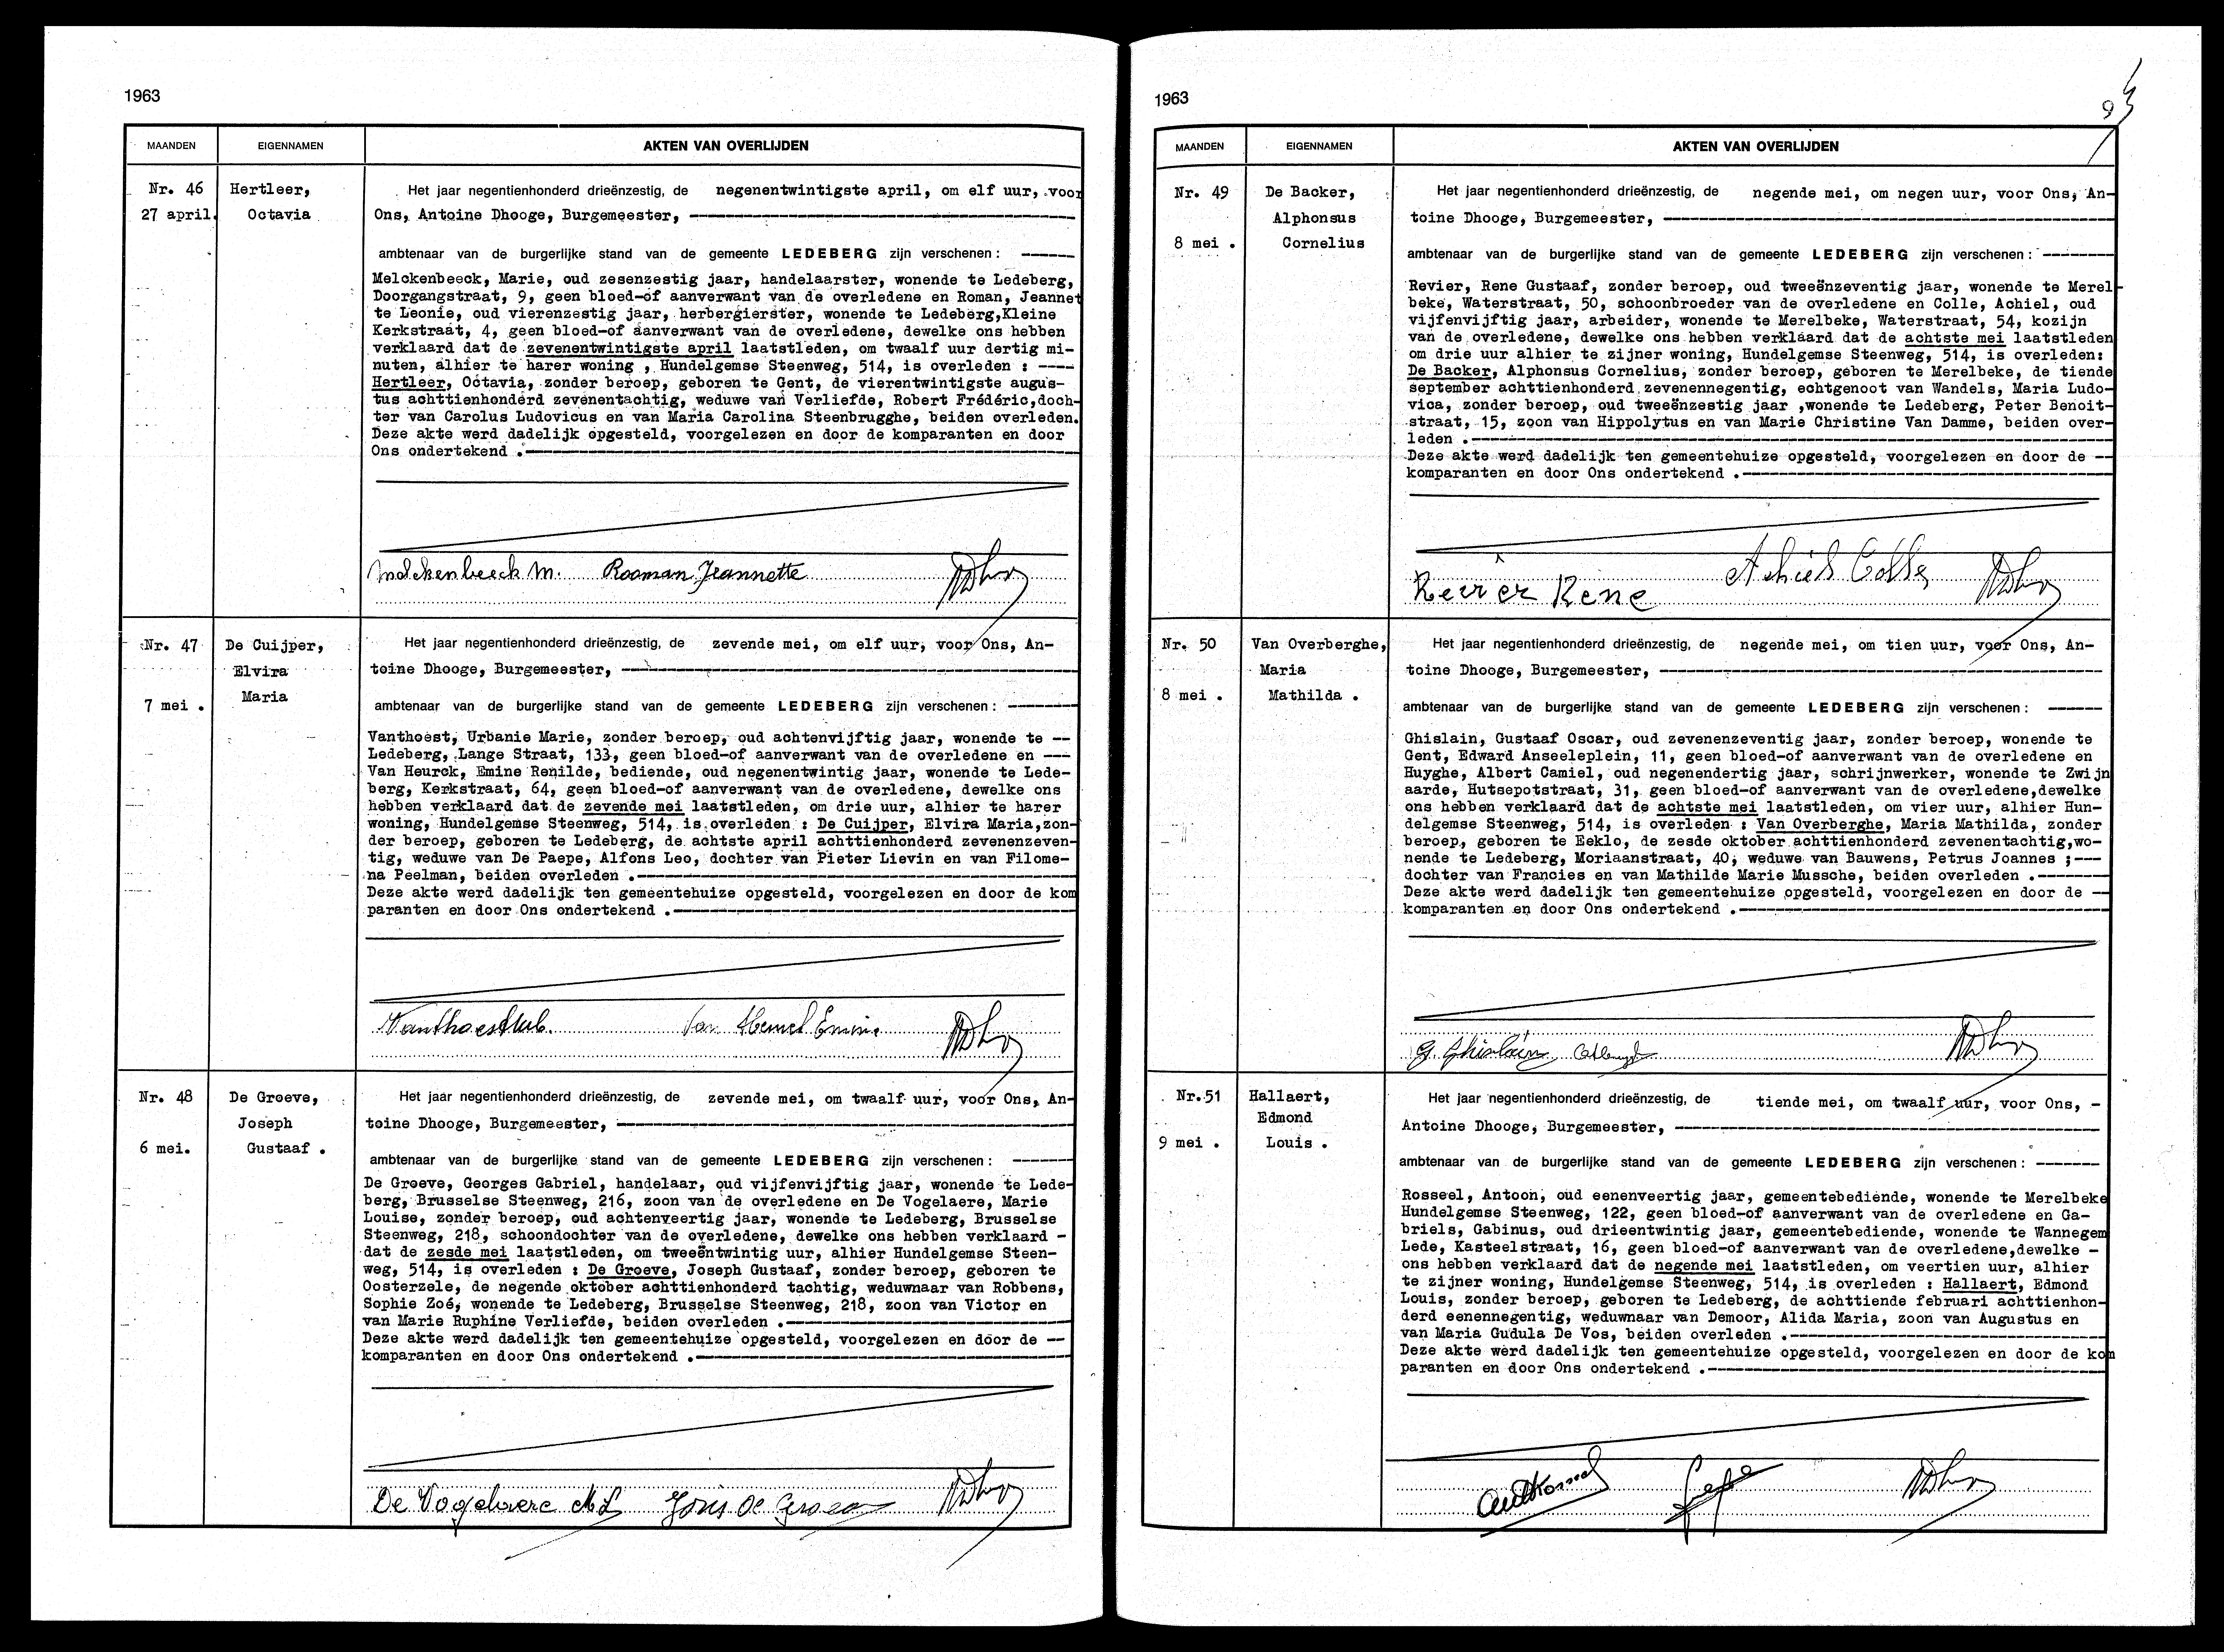 1963
MAANDEN EIGENNAMEN AKTEN VAN OVERLIJDEN
Nr. 46
27 april
Hertleer,
Octavia
Het jaar negentienhonderd drieënzestig, de negenentwintigste april, om elf uur, voor
Ons, Antoine Dhooge, Burgemeester,
ambtenaar van de burgerlijke stand van de gemeente LEDEBERG zijn verschenen :
Melckenbeeck, Marie, oud zesenzestig jaar, handelaarster, wonende te Ledeberg,
Doorgangstraat, 9, geen bloed-of aanverwant van de overledene en Roman, Jeannet
te Leonie, oud vierenzestig jaar, herbergierster, wonende te Ledeberg,Kleine
Kerkstraat, 4, geen bloed-of aanverwant van de overledene, dewelke ons hebben
verklaard dat de zevenentwintigste april laatstleden, om twaalf uur dertig mi-
nuten, alhier te harer woning , Hundelgemse Steenweg, 514, is overleden : ----
Hertleer, Octavia, zonder beroep, geboren te Gent, de vierentwintigste augus-
tus achttienhonderd zevenentachtig, weduwe van Verliefde, Robert Frédéric,doch-
ter van Carolus Ludovicus en van Maria Carolina Steenbrugghe, beiden overleden.
Deze akte werd dadelijk opgesteld, voorgelezen en door de komparanten en door
Ons ondertekend .
Melckenbeeck M. Rooman Jeannette
Nr. 47
7 mei .
De Cuijper,
Elvira
Maria
Het jaar negentienhonderd drieënzestig, de zevende mei, om elf uur, voor Ons, An-
toine Dhooge, Burgemeester,
ambtenaar van de burgerlijke stand van de gemeente LEDEBERG zijn verschenen :
Vanthoest, Urbanie Marie, zonder beroep, oud achtenvijftig jaar, wonende te --
Ledeberg, Lange Straat, 133, geen bloed-of aanverwant van de overledene en ---
Van Heurck, Emine Renilde, bediende, oud negenentwintig jaar, wonende te Lede-
berg, Kerkstraat, 64, geen bloed-of aanverwant van de overledene, dewelke ons
hebben verklaard dat de zevende mei laatstleden, om drie uur, alhier te harer
woning, Hundelgemse Steenweg, 514, is overleden : De Cuijper, Elvira Maria,zon-
der beroep, geboren te Ledeberg, de achtste april achttienhonderd zevenenzeven-
tig, weduwe van De Paepe, Alfons Leo, dochter van Pieter Lievin en van Filome-
na Peelman, beiden overleden .
Deze akte werd dadelijk ten gemeentehuize opgesteld, voorgelezen en door de kom
paranten en door Ons ondertekend .
Vanthoest Urb. Van Emine
Nr. 48
6 mei.
De Groeve,
Joseph
Gustaaf .
Het jaar negentienhonderd drieënzestig, de zevende mei, om twaalf uur, voor Ons, An-
toine Dhooge, Burgemeester,
ambtenaar van de burgerlijke stand van de gemeente LEDEBERG zijn verschenen :
De Groeve, Georges Gabriel, handelaar, oud vijfenvijftig jaar, wonende te Lede-
berg, Brusselse Steenweg, 216, zoon van de overledene en De Vogelaere, Marie
Louise, zonder beroep, oud achtenveertig jaar, wonende te Ledeberg, Brusselse
Steenweg, 218, schoondochter van de overledene, dewelke ons hebben verklaard -
dat de zesde mei laatstleden, om tweeëntwintig uur, alhier Hundelgemse Steen-
weg, 514, is overleden : De Groeve, Joseph Gustaaf, zonder beroep, geboren te
Oosterzele, de negende oktober achttienhonderd tachtig, weduwnaar van Robbens,
Sophie Zoé, wonende te Ledeberg, Brusselse Steenweg, 218, zoon van Victor en
van Marie Ruphine Verliefde, beiden overleden .
Deze akte werd dadelijk ten gemeentehuize opgesteld, voorgelezen en door de --
komparanten en door Ons ondertekend .
De Vogelaere M L Joris De Groeve
1963
9
MAANDEN EIGENNAMEN AKTEN VAN OVERLIJDEN
Nr. 49
8 mei .
De Backer,
Alphonsus
Cornelius
Het jaar negentienhonderd drieënzestig, de negende mei, om negen uur, voor Ons, An-
toine Dhooge, Burgemeester,
ambtenaar van de burgerlijke stand van de gemeente LEDEBERG zijn verschenen :
Revier, Rene Gustaaf, zonder beroep, oud tweeënzeventig jaar, wonende te Merel-
beke, Waterstraat, 50, schoonbroeder van de overledene en Colle, Achiel, oud
vijfenvijftig jaar, arbeider, wonende te Merelbeke, Waterstraat, 54, kozijn
van de overledene, dewelke ons hebben verklaard dat de achtste mei laatstleden
om drie uur alhier te zijner woning, Hundelgemse Steenweg, 514, is overleden:
De Backer, Alphonsus Cornelius, zonder beroep, geboren te Merelbeke, de tiende
september achttienhonderd zevenennegentig, echtgenoot van Wandels, Maria Ludo-
vica, zonder beroep, oud tweeënzestig jaar ,wonende te Ledeberg, Peter Benoit-
straat, 15, zoon van Hippolytus en van Marie Christine Van Damme, beiden over-
leden .
Deze akte werd dadelijk ten gemeentehuize opgesteld, voorgelezen en door de --
komparanten en door Ons ondertekend .
Revier Rene Achiel Colle
Nr. 50
8 mei .
Van Overberghe,
Maria
Mathilda .
Het jaar negentienhonderd drieënzestig, de negende mei, om tien uur, voor Ons, An-
toine Dhooge, Burgemeester,
ambtenaar van de burgerlijke stand van de gemeente LEDEBERG zijn verschenen :
Ghislain, Gustaaf Oscar, oud zevenenzeventig jaar, zonder beroep, wonende te
Gent, Edward Anseeleplein, 11, geen bloed-of aanverwant van de overledene en
Huyghe, Albert Camiel, oud negenendertig jaar, schrijnwerker, wonende te Zwijn
aarde, Hutsepotstraat, 31, geen bloed-of aanverwant van de overledene,dewelke
ons hebben verklaard dat de achtste mei laatstleden, om vier uur, alhier Hun-
delgemse Steenweg, 514, is overleden : Van Overberghe, Maria Mathilda, zonder
beroep, geboren te Eeklo, de zesde oktober achttienhonderd zevenentachtig,wo-
nende te Ledeberg, Moriaanstraat, 40, weduwe van Bauwens, Petrus Joannes ;---
dochter van Francies en van Mathilde Marie Mussche, beiden overleden .
Deze akte werd dadelijk ten gemeentehuize opgesteld, voorgelezen en door de --
komparanten en door Ons ondertekend .
G. Ghislain
Nr. 51
9 mei .
Hallaert,
Edmond
Louis .
Het jaar negentienhonderd drieënzestig, de tiende mei, om twaalf uur, voor Ons, -
Antoine Dhooge, Burgemeester,
ambtenaar van de burgerlijke stand van de gemeente LEDEBERG zijn verschenen :
Rosseel, Antoon, oud eenenveertig jaar, gemeentebediende, wonende te Merelbeke
Hundelgemse Steenweg, 122, geen bloed-of aanverwant van de overledene en Ga-
briels, Gabinus, oud drieentwintig jaar, gemeentebediende, wonende te Wannegem
Lede, Kasteelstraat, 16, geen bloed-of aanverwant van de overledene,dewelke -
ons hebben verklaard dat de negende mei laatstleden, om veertien uur, alhier
te zijner woning, Hundelgemse Steenweg, 514, is overleden : Hallaert, Edmond
Louis, zonder beroep, geboren te Ledeberg, de achttiende februari achttienhon-
derd eenennegentig, weduwnaar van Demoor, Alida Maria, zoon van Augustus en
van Maria Gudula De Vos, beiden overleden .
Deze akte werd dadelijk ten gemeentehuize opgesteld, voorgelezen en door de kom
paranten en door Ons ondertekend .